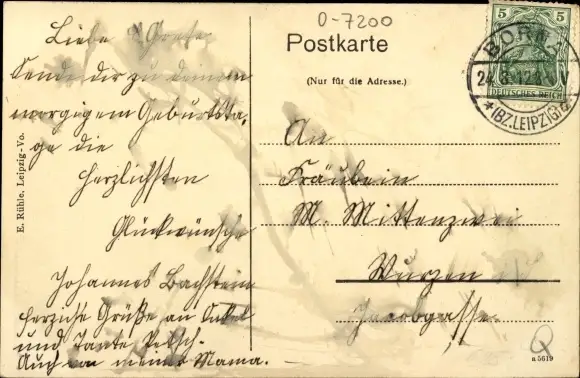 Liebe Grete
Sende dir zu deinem
morgigem Geburtsta-
ge die
herzlichsten
Glückwünsche
Johannes Bachstein
herzliche Grüße an Onkel
und Tante
Auch von meiner Mama.
E. Rühle, Leipzig-Vo.
0-7200
Postkarte
(Nur für die Adresse.)
5 5
DEUTSCHES REICH
BORNA
24.3.12.
*(BZ.LEIPZIG)
An
Fräulein
M. Mittenzwei
Wurzen
Jacobgasse.
a 5619